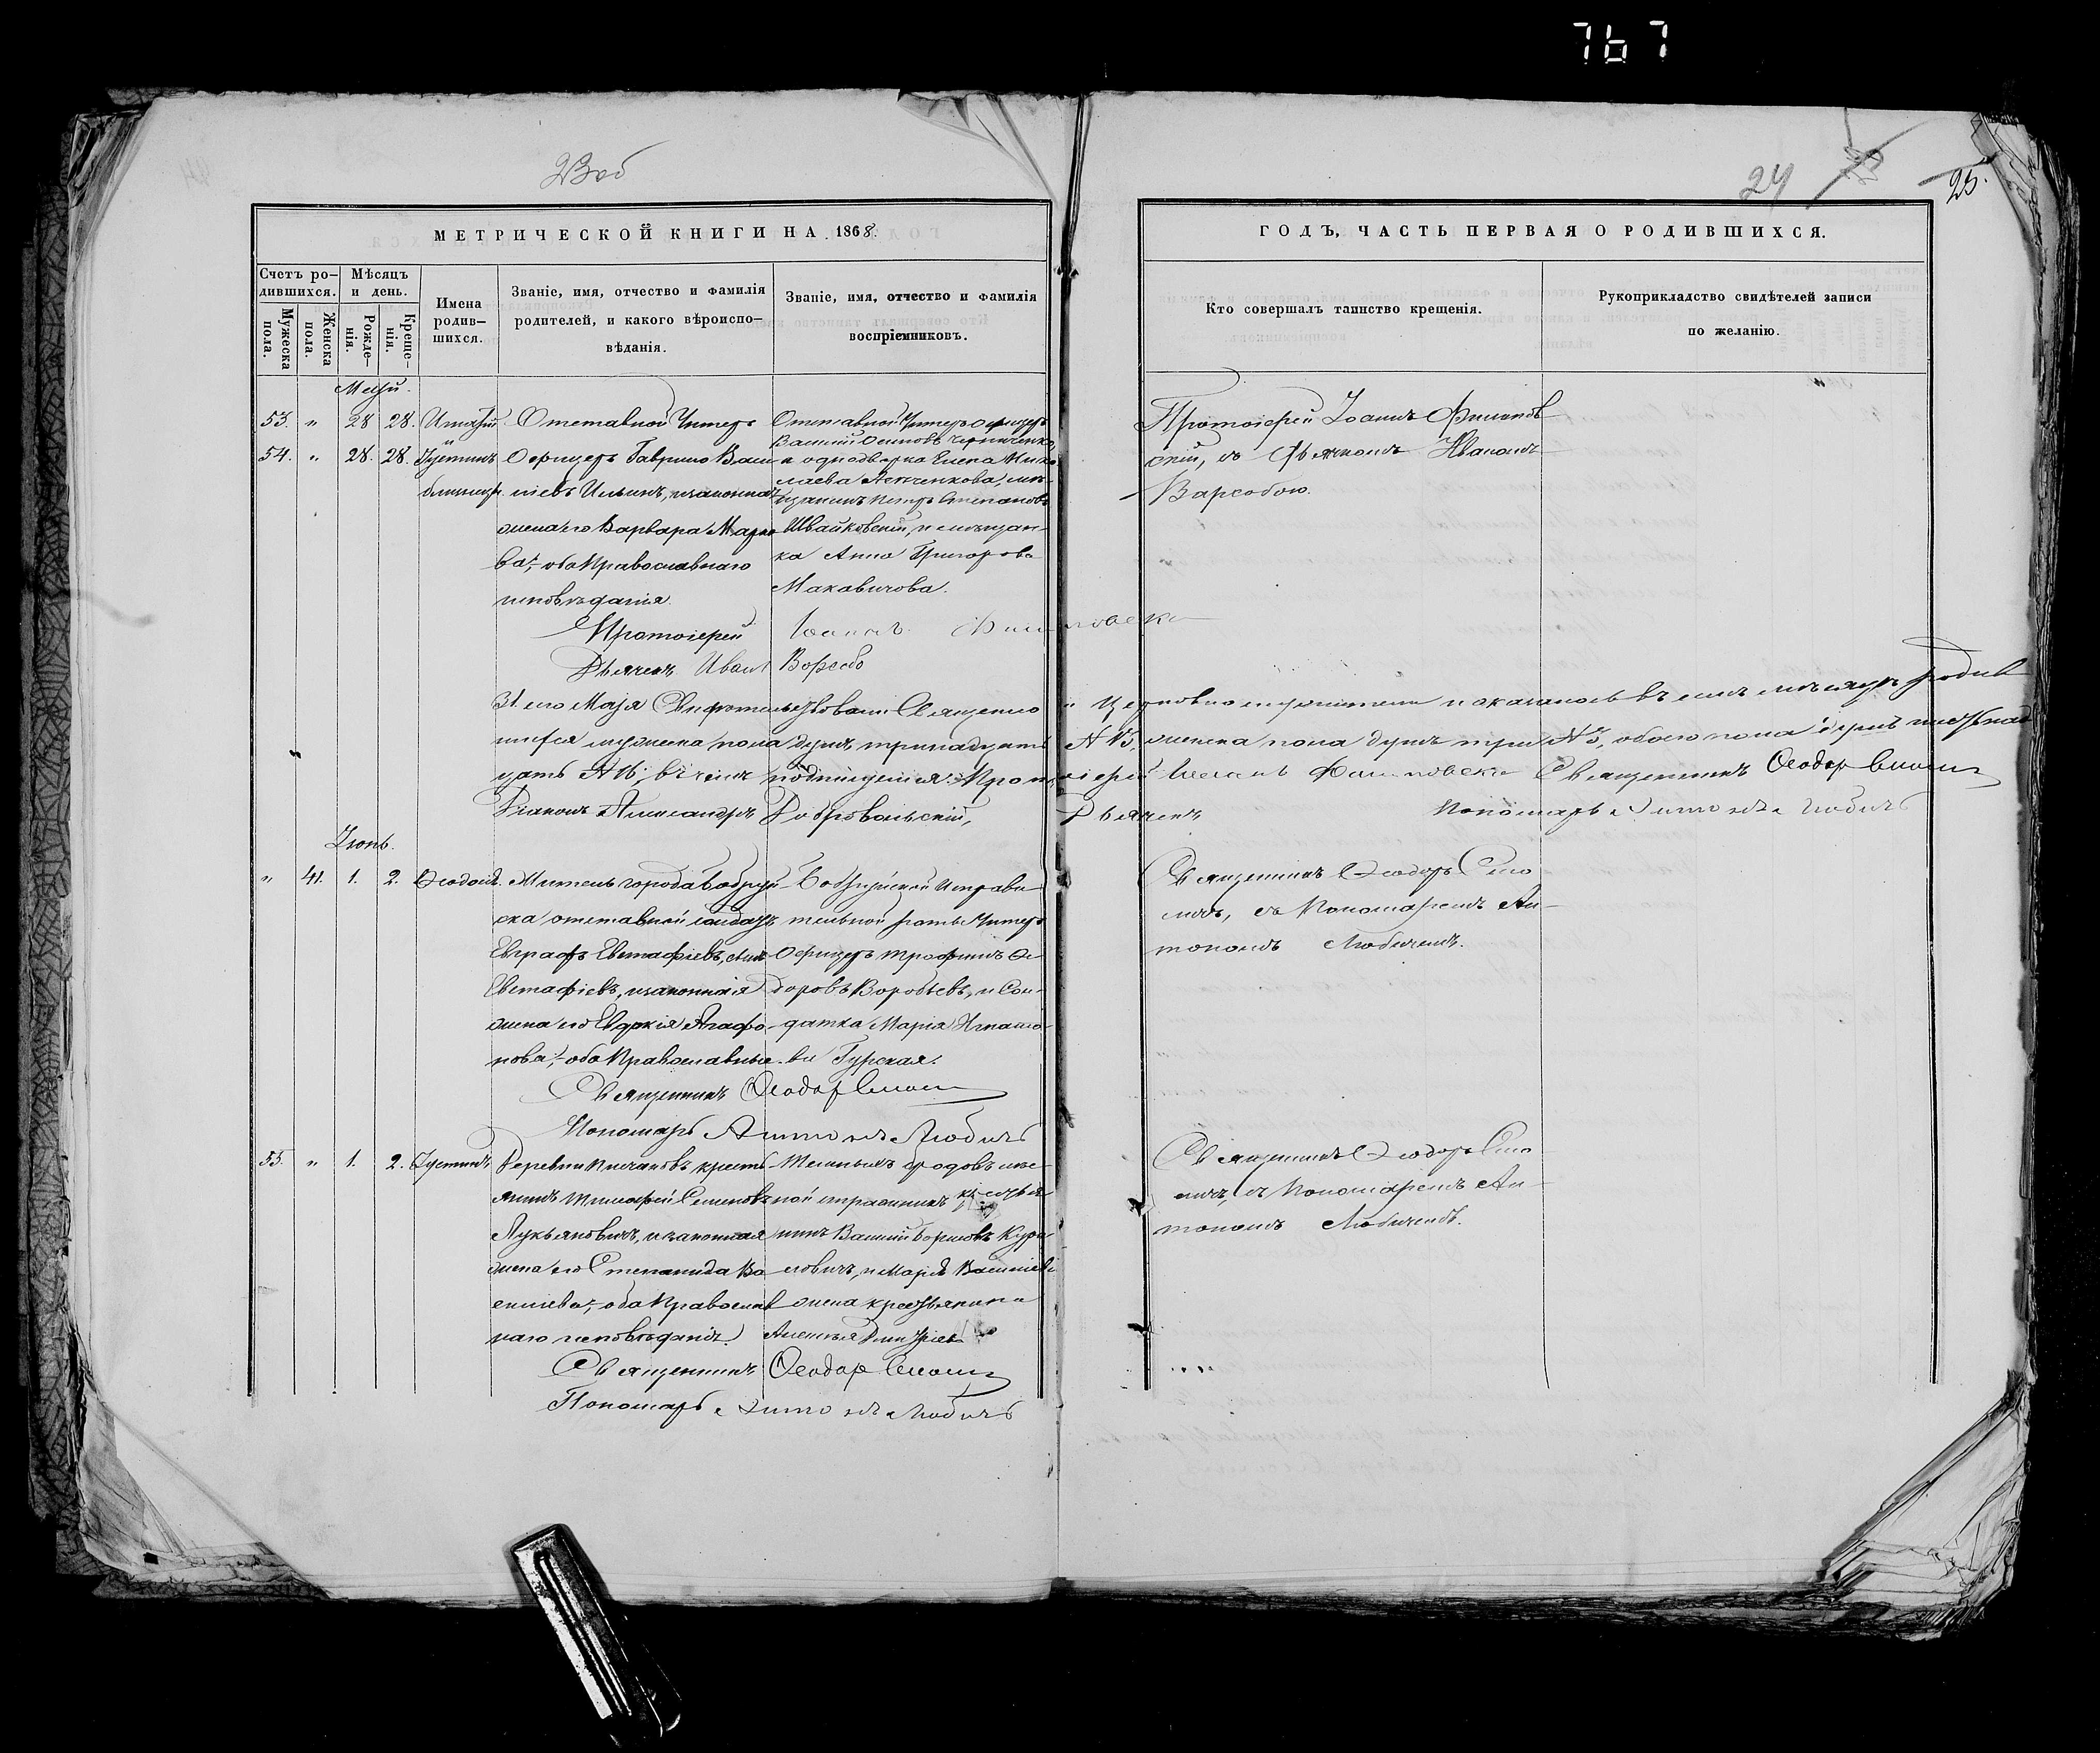 767
23 об
24
25.
МЕТРИЧЕСКОЙ КНИГИ НА 1868.
ГОДЪ, ЧАСТЬ ПЕРВАЯ О РОДИВШИХСЯ.
Счетъ родившихся.
Мужеска пола.
Женска пола.
Мѣсяцъ и день.
Рожденія.
Крещенія.
Имена родившихся.
Званіе, имя, отчество и фамилія родителей, и какого вѣроисповѣданія.
Званіе, имя, отчество и фамилія воспріемниковъ.
Кто совершалъ таинство крещенія.
Рукоприкладство свидѣтелей записи по желанію.
Маій.
53. " 28 28. Игнатій
и
54. " 28. 28. Іустинъ
близнецы
Отставной Унтеръ
Офицеръ Гаврило Васи
ліевъ Ильинъ, и законная
жена его Варвара Марко
ва, оба Православнаго
исповѣданія.
Отставной Унтеръ офицеръ
Василій Осиповъ
и однодворка Елена Нико
лаева мѣ-
щанинъ Петръ Степановъ
Швайковскій, и мѣщан-
ка Анна Григорова
Макавичова.
Протоіерей Іоаннъ
скій, съ Дьячкомъ Иваномъ
Варсобою.
Протоіерей Іоаннъ
Дьячекъ Иванъ Варсобо
31 го Маія Свидѣтельствовали Священно и Церковнослужители и оказалось въ семъ мѣсяцѣ родив
шихся мужеска пола душъ тринадцать № 13, женска пола душъ три № 3, обоего пола душъ шестнад
цать № 16, въ чемъ подпишемся. Протоіерей Іоаннъ Священникъ Ѳеодоръ
Діаконъ Александръ Добровольскій, Дьячекъ Пономарь Антонъ Любичъ
Іюнь.
" 41. 1. 2. Ѳеодосія.
Житель города Бобруй
ска отставной солдатъ
Евграфъ Евстафіевъ,
Евстафіевъ, и законная
жена его Евдокія Агафо-
нова, оба Православные.
Бобруйской Исправи
тельной роты Унтеръ
Офицеръ Трофимъ Ѳе
доровъ Воробьевъ, и Сол-
датка Марія Игнатіе
ва Гурская.
Священникъ Ѳеодоръ
съ Пономаремъ Ан-
тономъ Любичемъ.
Священникъ Ѳеодоръ
Пономарь Антонъ Любичъ
55. " 1. 2. Іустинъ
Деревни крестья
янинъ Тимофей Семеновъ
Лукьяновичъ, и законная
жена его Степанида Ва
силіева, оба Православ
наго исповѣданія.
кресть
нинъ Василій Борисовъ
и Марія Василіева
жена крестьянина
Алексѣя
Священникъ Ѳеодоръ
съ Пономаремъ Ан-
тономъ Любичемъ.
Священникъ Ѳеодоръ
Пономарь Антонъ Любичъ